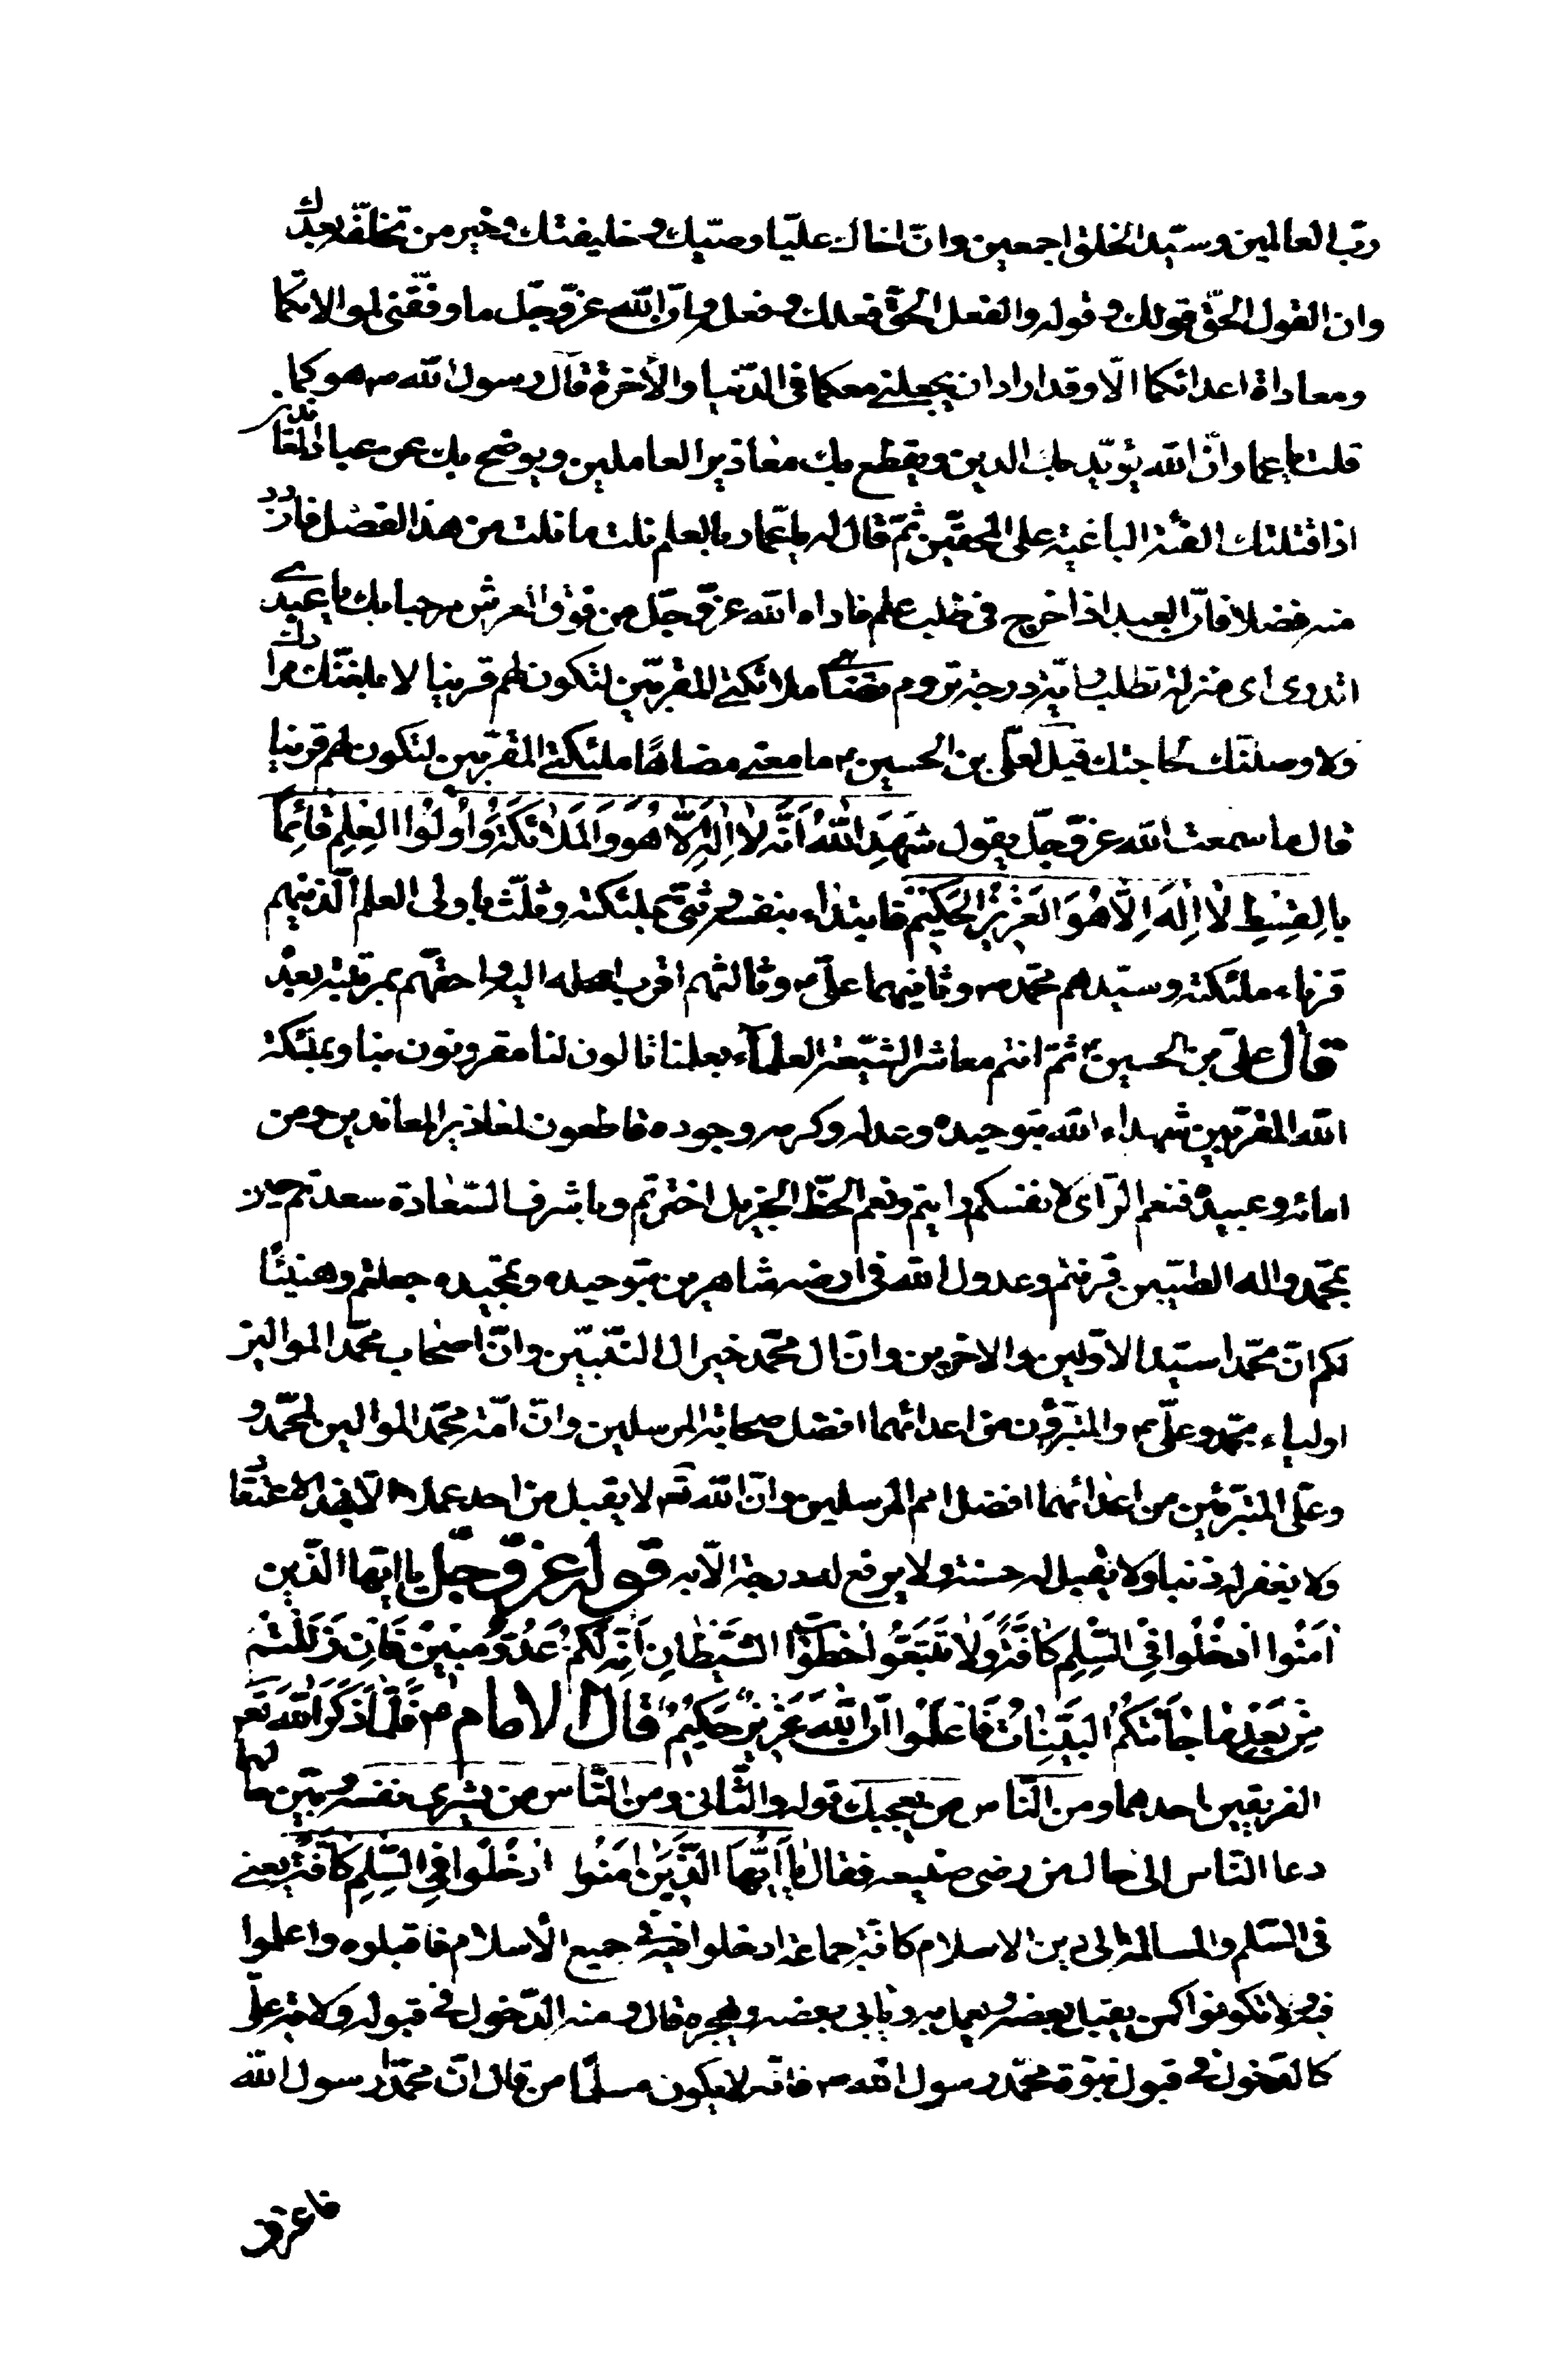 ربّ العالمين وسيّد الخلق اجمعين وانّ اخاك عليّا وصيّك وخليفتك وخير من تخلّفه بعدك
وان القول الحقّ قولك وقوله والفعل الحقّ فعلك وفعله وانّ الله عزّ وجلّ ما وفّقنى لموالاتكما
ومعاداة اعدائكما الّا وقد اراد ان يجعلنى معكما فى الدّنيا والأخرة فقال رسول الله ص هو كما
قلت يا عمار انّ الله يؤيّد بك الدين ويقطع بك معاذير الغافلين ويوضح بك عن عناد المعاندين
اذا قتلتك الفئة الباغية على المحقّين ثمّ قال له يا عمّار بالعلم نلت ما نلت من هذا الفضل فازدد
منه فضلا فانّ العبد اذا خرج فى طلب علم ناداه الله عزّ وجلّ من فوق العرش مرحبا بك يا عبدى
اتدرى اى منزلة تطلب واية درجة تروم تضاهى ملائكتى المقرّبين لتكون لهم قرينا لابلغنّك مرادك
ولاوصلنّك لحاجتك قيل لعلّى بن الحسين ع ما معنى مضاهاة ملئكتى المقرّبين لتكون لهم قرينا
قال ما سمعت الله عزّ وجلّ يقول شَهِدَ اللهُ اَنَّهُ لَا اِلٰهَ اِلَّا هُوَ وَالْمَلَائِكَةُ وَاُولُوا الْعِلْمِ قَائِمًا
بِالْقِسْطِ لَا اِلٰهَ اِلَّا هُوَ الْعَزِيزُ الْحَكِيمُ فابتداء بنفسه وثنّى بملئكته وثلّث باولى العلم الّذينهم
قرناء ملئكته وسيّدهم محمّد ص وثانيهم علىّ ع وثالثهم اقرب اهله اليه واحقّهم بمرتبته بعده
قال علىّ بن الحسين ع ثمّ انتم معاشر الشّيعة العلماء بعلمنا تالون لنا مقرونون بنا وبملئكة
الله المقرّبين شهداء الله بتوحيده وعدله وكرمه وجوده قاطعون لمعاذير المعاندين من
امائه وعبيده فنعم الرّاى لانفسكم رايتم ونعم الحظّ الجزيل اخترتم وباشرف السّعادة سعدتم حين
بمحمّد واله الطيّبين قرنتم وعدول الله فى ارضه شاهرين بتوحيده وتمجيده جعلتم وهنيئا
لكم انّ محمّدا سيّد الاوّلين والاخرين وانّ ال محمّد خير ال النّبيّين وانّ اصحاب محمّد الموالين
اولياء محمّد وعلّى ع والمتبرّؤن من اعدائهما افضل صحابة المرسلين وانّ امّة محمّد الموالين لمحمّد و
وعلى المتبرّئين من اعدائهما افضل امم المرسلين وانّ الله تع لا يقبل من احد عملا الّا بهذا الاعتقاد
ولا يغفر له ذنبا ولا يقبل له حسنة ولا يرفع له درجة الّا به قوله عزّ وجلّ يا ايّها الّذين
اٰمَنُوا ادْخُلُوا فِي السِّلْمِ كَافَّةً وَلَا تَتَّبِعُوا خُطُوَاتِ الشَّيْطَانِ اِنَّهُ لَكُمْ عَدُوٌّ مُبِينٌ فَاِنْ زَلَلْتُمْ
مِنْ بَعْدِ مَا جَائَتْكُمُ الْبَيِّنَاتُ فَاعْلَمُوا اَنَّ اللهَ عَزِيزٌ حَكِيمٌ قال الامام ع فَلَمَّا ذَكَرَ اللهُ تع
الفريقين احدهما ومن النّاس من يعجبك قوله والثّانى ومن النّاس من يشرى نفسه وبيّن حالهما
دعا النّاس الى حال من رضى صنيعه فقال يَا اَيُّهَا الَّذِينَ اٰمَنُوا ادْخُلُوا فِي السِّلْمِ كَافَّةً يعنى
فى السّلم والمسالمة الى دين الاسلام كافّة جماعة ادخلوا فيه فى جميع الأسلام فاقبلوه واعملوا
فيه ولا تكونوا كمن يقبل بعضه ويعمل به ويابى بعضه ويهجره قال ومنه الدّخول فى قبول ولاية علىّ
كالدّخول فى قبول نبوّة محمّد رسول الله ص فانّه لا يكون مسلما من قال انّ محمّدا رسول الله
فاعترف